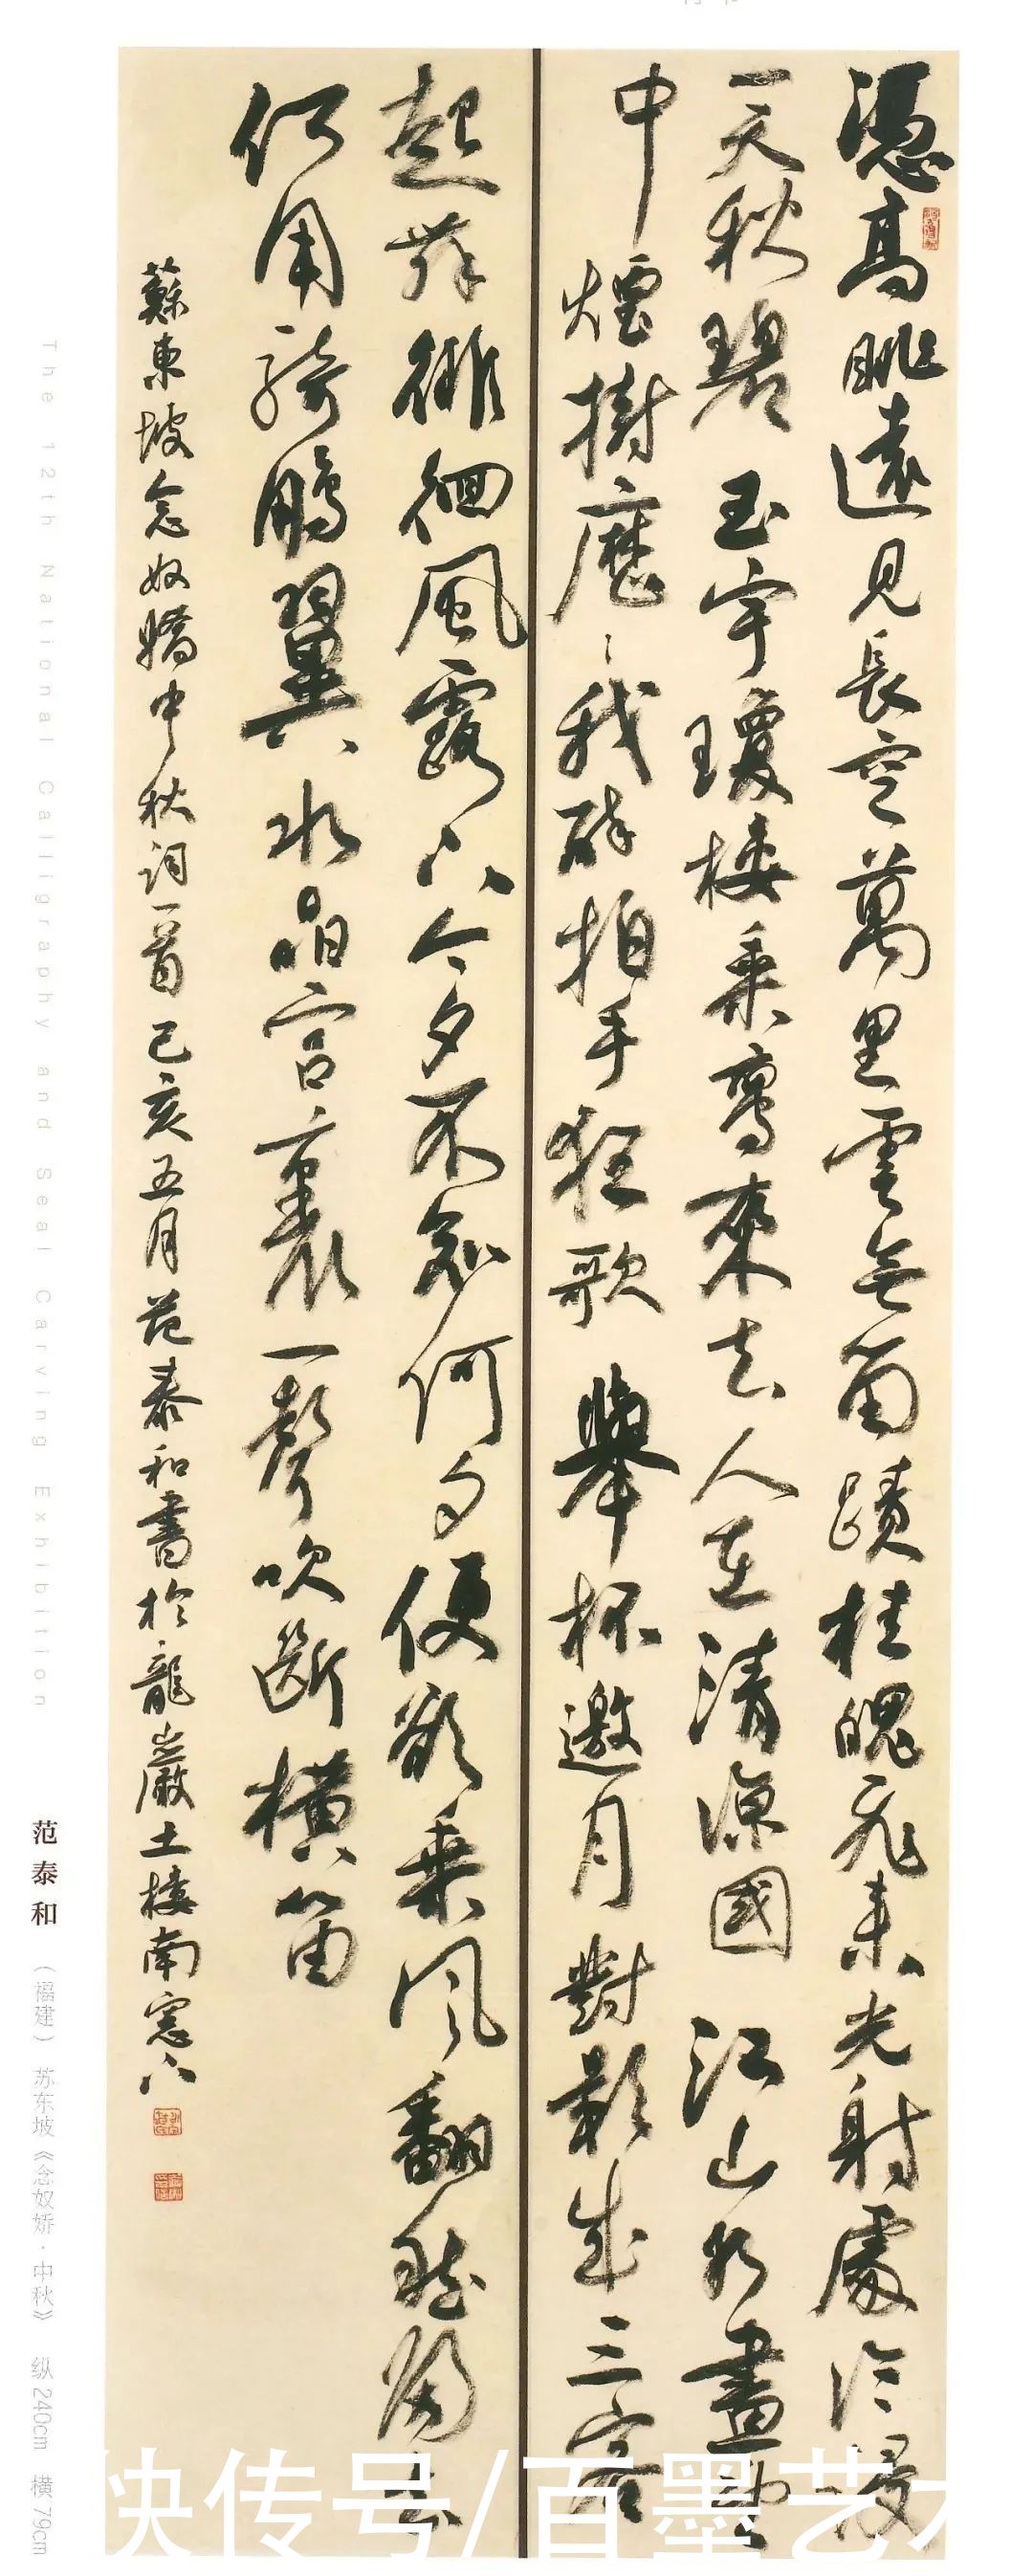 憑高眺遠見長空萬里雲無留蹟桂魄飛来光射處冷浸
一天秋碧玉宇瓊樓乘鸞來去人在清涼國江山如畫望
中煙樹歷〻我醉拍手狂歌舉杯邀月對影成三客
起舞徘徊風露下今夕不知何夕便欲乘风翻然歸去
何用騎鵬翼水晶宫裏一聲吹斷橫笛
蘇東坡念奴嬌中秋詞一首己亥五月范泰和書於龍巖土樓南窓下
The 12th National Calligraphy and Seal Carving Exhibition
范泰和（福建） 苏东坡《念奴娇·中秋》 纵240cm 横79cm
快传号/百墨艺术